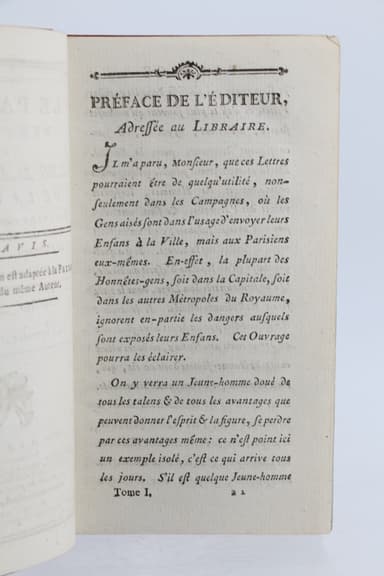 LE PA
AVIS.
n est adaptée à la PA
du même Auteur.
PRÉFACE DE L'ÉDITEUR,
Adreſſée au LIBRAIRE.
IL m'a paru, Monſieur, que ces Lettres
pourraient être de quelqu'utilité, non-
ſeulement dans les Campagnes, où les
Gens aisés ſont dans l'uſage d'envoyer leurs
Enfans à la Ville, mais aux Pariſiens
eux-mêmes. En-effet, la plupart des
Honnêtes-gens, ſoit dans la Capitale, ſoit
dans les autres Métropoles du Royaume,
ignorent en-partie les dangers auſquels
ſont expoſés leurs Enfans. Cet Ouvrage
pourra les éclairer.
On y verra un Jeune-homme doué de
tous les talens & de tous les avantages que
peuvent donner l'eſprit & la figure, ſe perdre
par ces avantages même: ce n'eſt point ici
un exemple iſolé, c'eſt ce qui arrive tous
les jours. S'il eſt quelque Jeune-homme
Tome I.